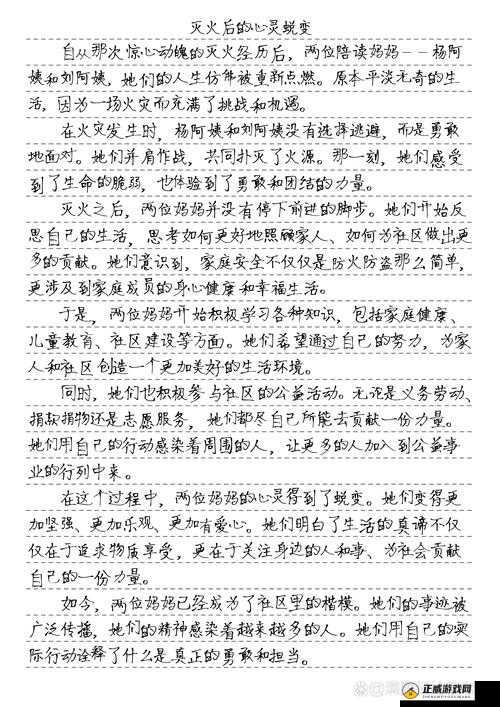 灭火后的心灵蜕变
自从那次惊心动魄的灭火经历后，两位陪读妈妈--杨阿
姨和刘阿姨，她们的人生仿佛被重新点燃。原本平淡无奇的生
活，因为一场火灾而充满了挑战和机遇。
在火灾发生时，杨阿姨和刘阿姨没有选择逃避，而是勇敢
地面对。她们并肩作战，共同扑灭了火源。那一刻，她们感受
到了生命的脆弱，也体验到了勇敢和团结的力量。
灭火之后，两位妈妈并没有停下前进的脚步。她们开始反
思自己的生活，思考如何更好地照顾家人、如何为社区做出更
多的贡献。她们意识到，家庭安全不仅仅是防火防盗那么简单，
更涉及到家庭成员的身心健康和幸福生活。
于是，两位妈妈开始积极学习各种知识，包括家庭健康、
儿童教育、社区建设等方面。她们希望通过自己的努力，为家
人和社区创造一个更加美好的生活环境。
同时，她们也积极参与社区的公益活动。无论是义务劳动、
捐款捐物还是志愿服务，她们都尽自己所能去贡献一份力量。
她们用自己的行动感染着周围的人，让更多的人加入到公益事
业的行列中来。
在这个过程中，两位妈妈的心灵得到了蜕变。她们变得更
加坚强、更加乐观、更加有爱心。她们明白了生活的真谛不仅
仅在于追求物质享受，更在于关注身边的人和事、为社会贡献
自己的一份力量。
如今，两位妈妈已经成为了社区里的楷模。她们的事迹被
广泛传播，她们的精神感染着越来越多的人。她们用自己的实
际行动诠释了什么是真正的勇敢和担当。
正威游戏网